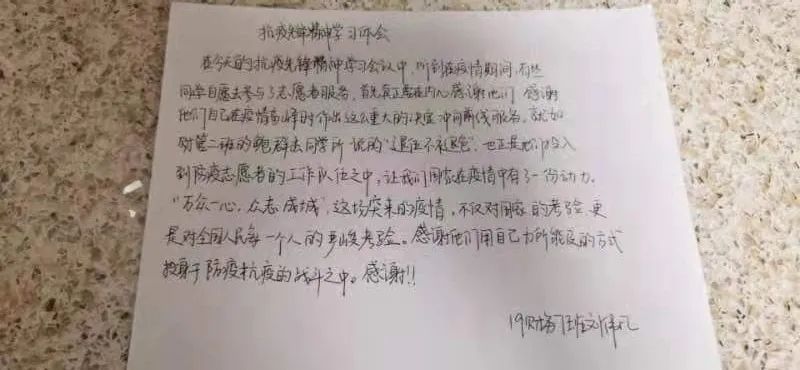 抗疫先锋精神学习体会
在今天的抗疫先锋精神学习会议中，听到在疫情期间，有些
同学自愿去参与了志愿者服务，首先真正要在内心感谢他们，感谢
他们自己在疫情高峰时作出这么重大的决定冲向前线服务。就如
财管二班的鲍群去同学所说的“退伍不褪色”，也正是他们投入
到防疫志愿者的工作队伍之中，让我们国家在疫情中有了一份动力。
“万众一心，众志成城”，这场突来的疫情，不仅对国家的考验，更
是对全国人民每一个人的严峻考验。感谢他们用自己力所能及的方式
投身于防疫抗疫的战斗之中。感谢!!
19财 班刘伟凡